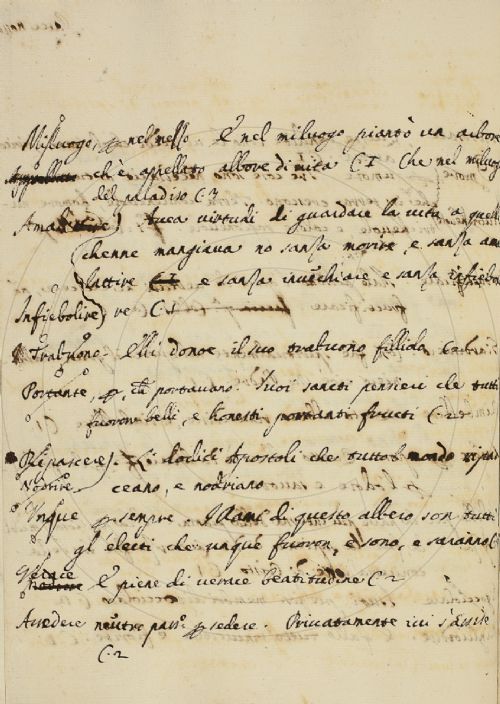 Miluogo, p nel messo E nel miluogo piantò un arbore
Appellato ch'è appellato albore di vita C.1 Che nel miluogo
del paradiso C.2
Amalattire tuea virtudi di guardare la vita a quelli
chenne mangiava no sanza morire, e sanza ama
lattire C.1 e sanza invecchiare e sanza infiebol
Infiebolire re C.1
Trabuono. Elli donoe il suo trabuono
Portante, p, portavano. Suoi sancti pensieri che tutti
fuoron belli, e honesti portanti fructi C.2
Ripascere Li dodici Apostoli che tutto'l mondo ripas
Nodrire ceano, e nodriano
Unque p sempre. I rami di questo albero son tutti
gl'electi che unque fuoron, e sono, e saranno C
Verace
E piene di verace beatitudine C.2
Assedere neutro pass. p sedere. Privatamente ivi s'assise
C.2